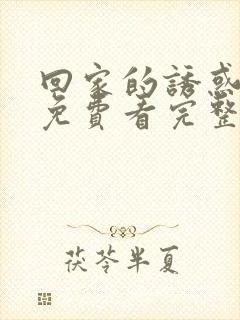 回家的誘惑
免費看完整
茯苓半夏